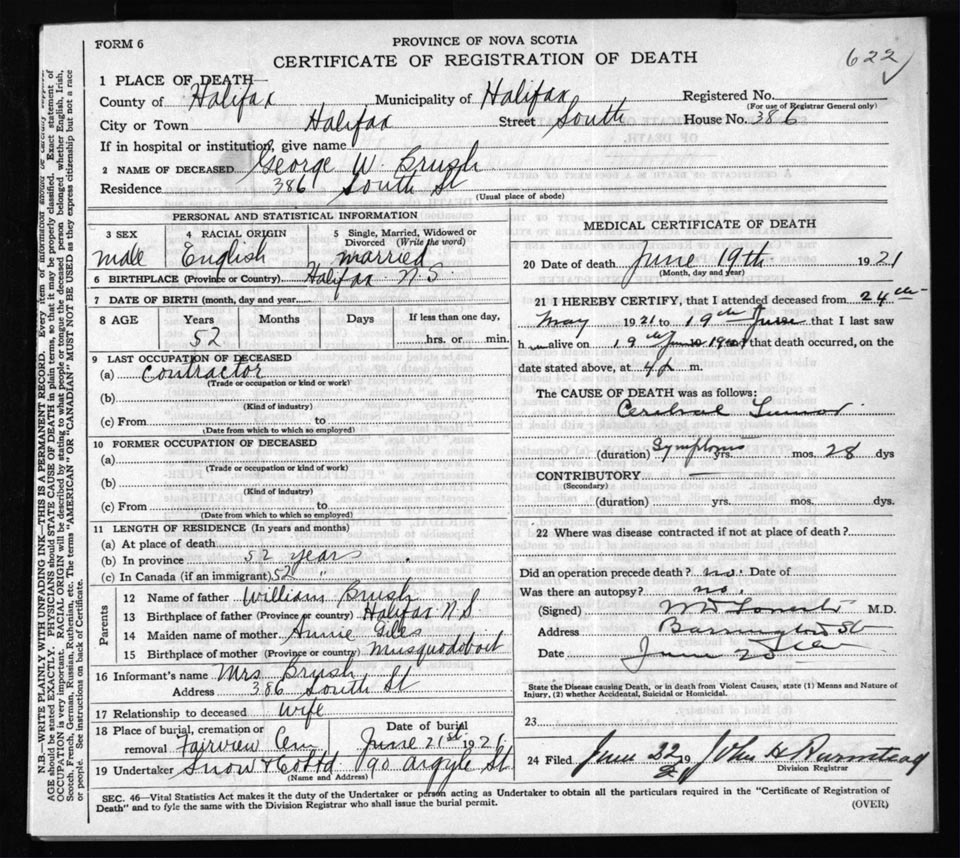 FORM 6
PROVINCE OF NOVA SCOTIA
CERTIFICATE OF REGISTRATION OF DEATH
622
1 PLACE OF DEATH
County of Halifax Municipality of Halifax Registered No.
(For use of Registrar General only)
City or Town Halifax Street South House No. 386
If in hospital or institution, give name
2 NAME OF DECEASED George W. Brush
Residence 386 South St
(Usual place of abode)
PERSONAL AND STATISTICAL INFORMATION
3 SEX
male
4 RACIAL ORIGIN
English
5 Single, Married, Widowed or Divorced (Write the word)
married
6 BIRTHPLACE (Province or Country) Halifax N.S.
7 DATE OF BIRTH (month, day and year)
8 AGE Years Months Days If less than one day,
52 hrs. or min.
9 LAST OCCUPATION OF DECEASED
(a) Contractor
(Trade or occupation or kind or work)
(b)
(Kind of industry)
(c) From to
(Date from which to which so employed)
10 FORMER OCCUPATION OF DECEASED
(a)
(Trade or occupation or kind of work)
(b)
(Kind of industry)
(c) From to
(Date from which to which so employed)
11 LENGTH OF RESIDENCE (In years and months)
(a) At place of death
(b) In province 52 years
(c) In Canada (if an immigrant) 52 "
Parents
12 Name of father William Brush
13 Birthplace of father (Province or country) Halifax N.S.
14 Maiden name of mother Annie Giles
15 Birthplace of mother (Province or country) Musquodoboit
16 Informant's name Mrs Brush
Address 386 South St
17 Relationship to deceased Wife
18 Place of burial, cremation or removal Fairview Cem
Date of burial June 21st 1921
19 Undertaker Snow & Co Ltd 90 Argyle St
(Name and Address)
MEDICAL CERTIFICATE OF DEATH
20 Date of death June 19th 1921
(Month, day and year)
21 I HEREBY CERTIFY, that I attended deceased from 24th
May 1921 to 19th June that I last saw
h alive on 19th that death occurred, on the
date stated above, at 4 m.
The CAUSE OF DEATH was as follows:
Cerebral Tumor
(duration) Symptoms yrs. mos. 28 dys
CONTRIBUTORY
(Secondary)
(duration) yrs. mos. dys.
22 Where was disease contracted if not at place of death?
Did an operation precede death? no. Date of
Was there an autopsy? no.
(Signed) M.D.
Address Barrington St
Date June
State the Disease causing Death, or in death from Violent Causes, state (1) Means and Nature of
Injury, (2) whether Accidental, Suicidal or Homicidal.
23
24 Filed June 22 19 John H Barnstead
Division Registrar
SEC. 46—Vital Statistics Act makes it the duty of the Undertaker or person acting as Undertaker to obtain all the particulars required in the "Certificate of Registration of
Death" and to fyle the same with the Division Registrar who shall issue the burial permit.
(OVER)
N.B.—WRITE PLAINLY WITH UNFADING INK—THIS IS A PERMANENT RECORD. Every item of information should be carefully supplied.
AGE should be stated EXACTLY. PHYSICIANS should STATE CAUSE OF DEATH in plain terms, so that it may be properly classified. Exact statement of
OCCUPATION is very important. RACIAL ORIGIN will be described by stating to what people or tongue the deceased person belonged whether English, Irish,
Scotch, French, German, Russian, Ruthenian, etc. The terms "AMERICAN" OR "CANADIAN" MUST NOT BE USED as they express citizenship but not a race
or people. See instructions on back of Certificate.